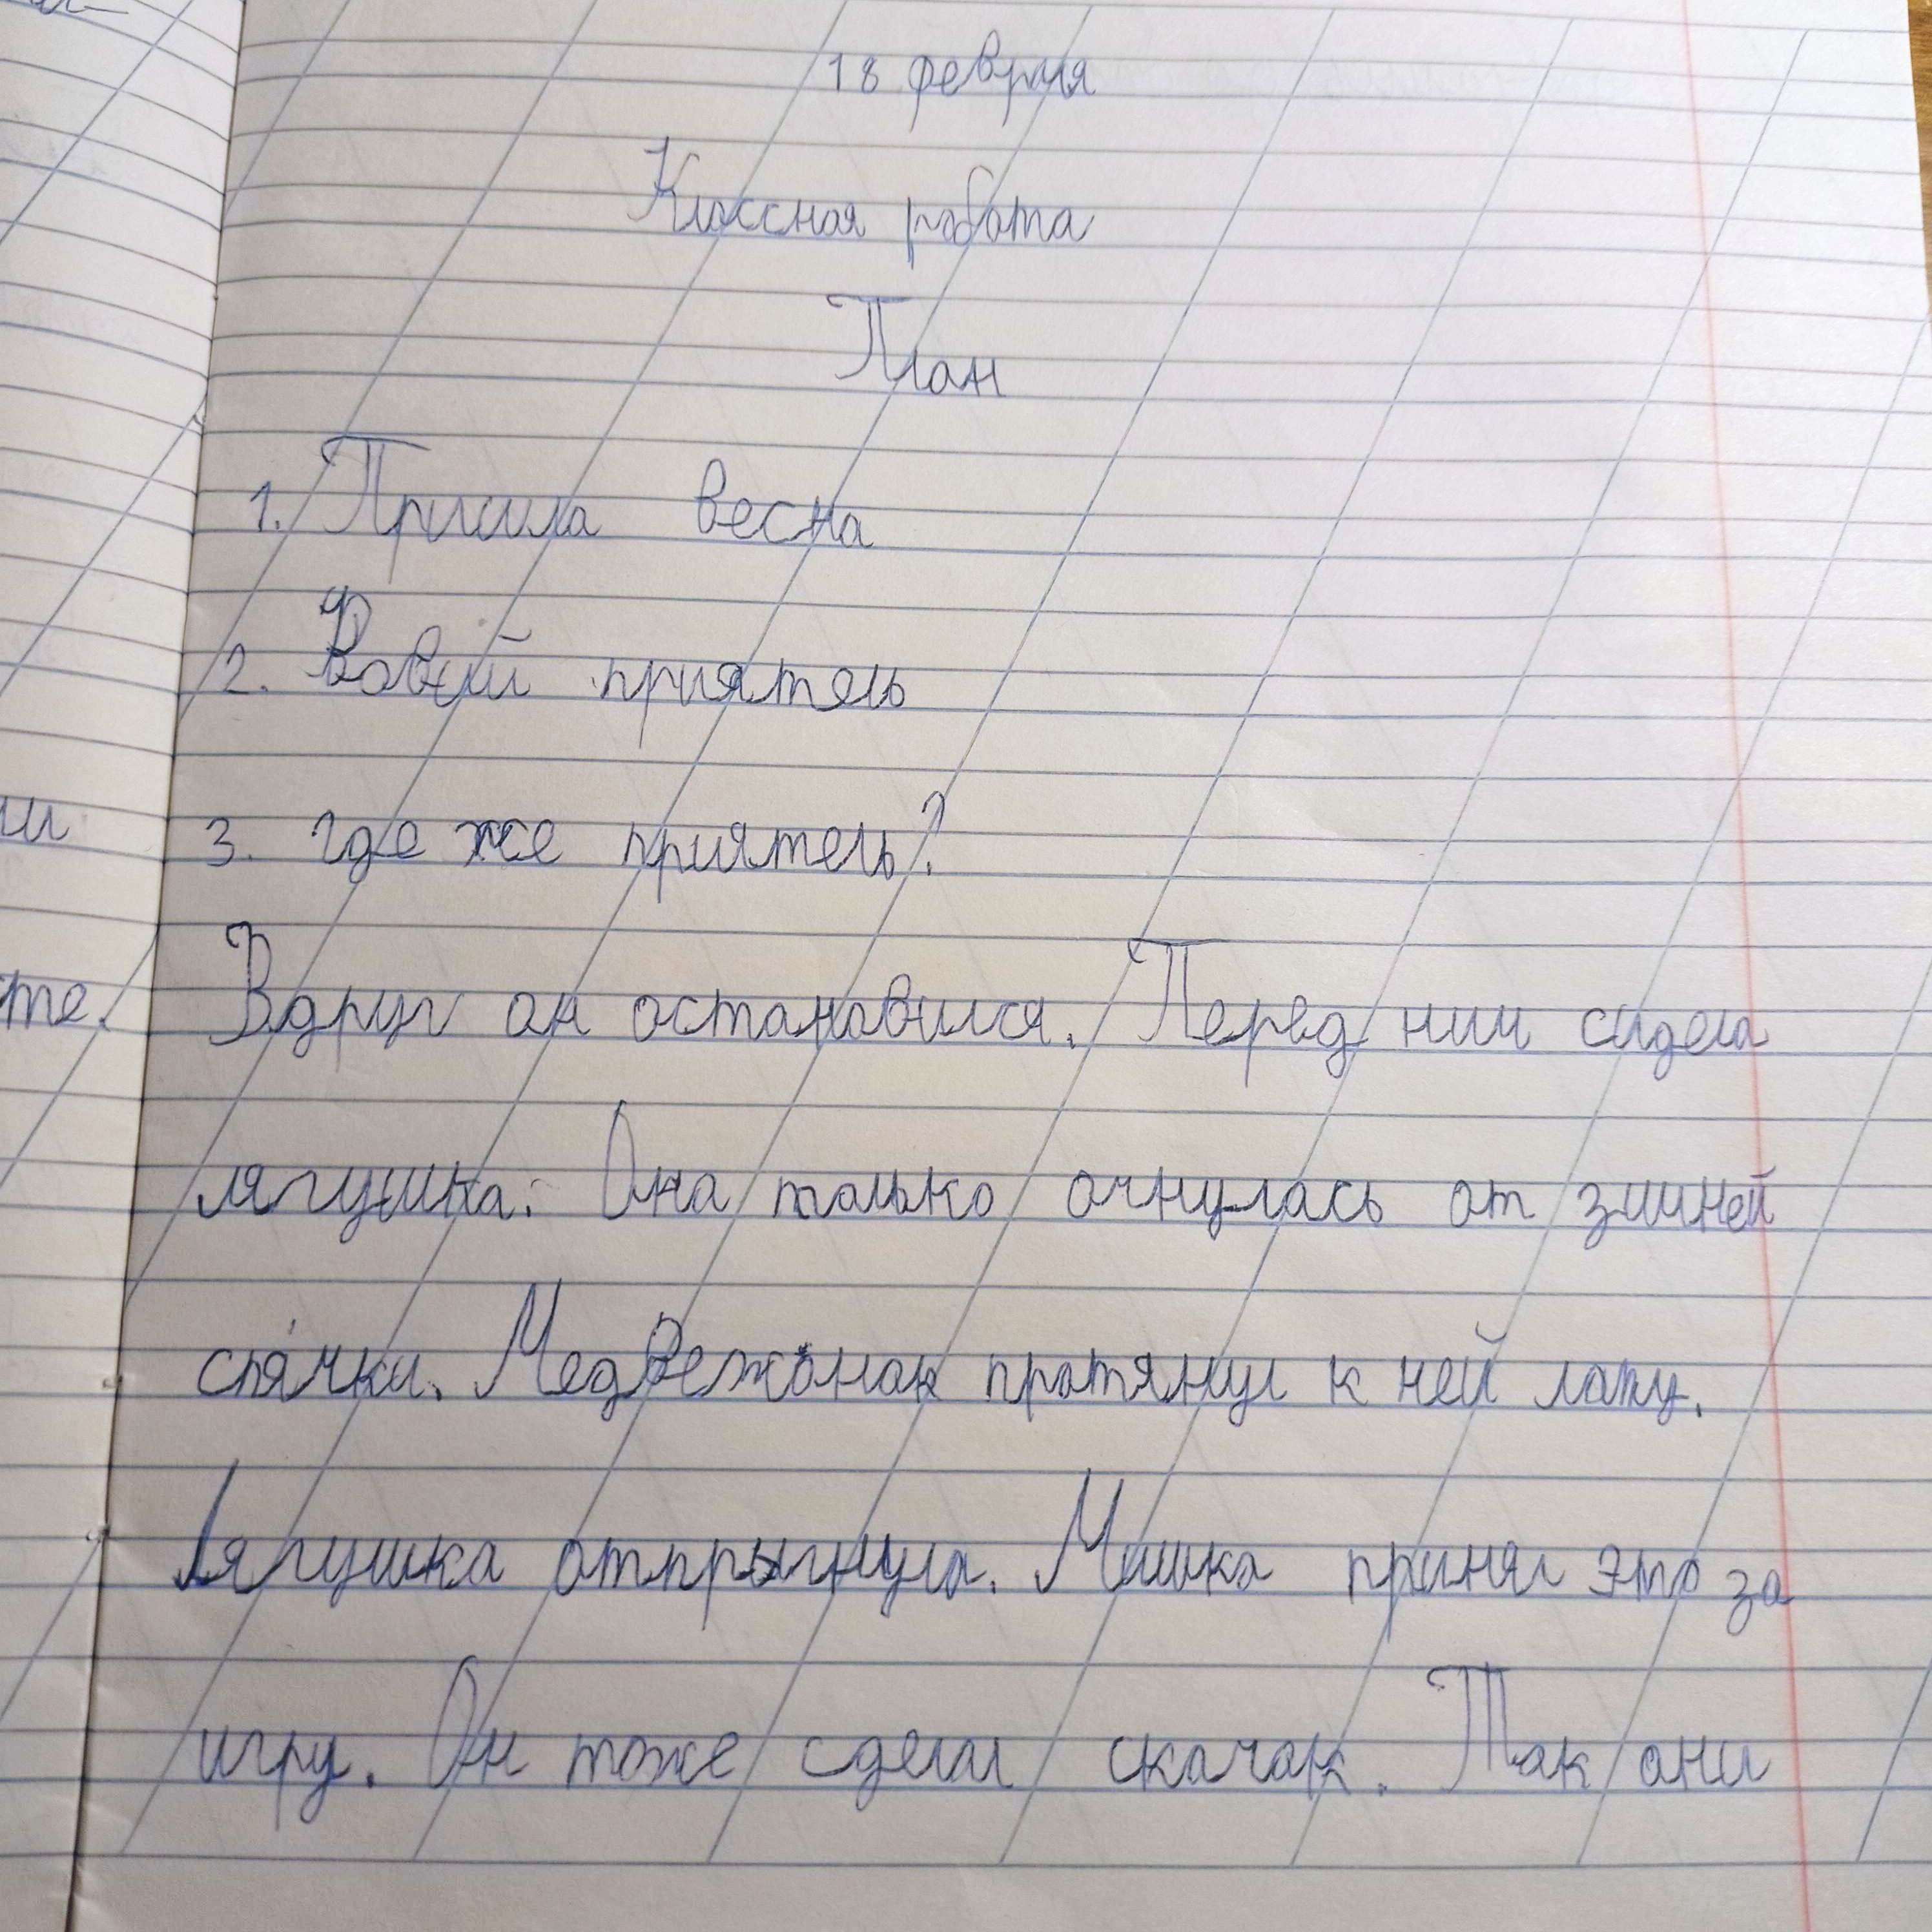 18 февраля
Классная работа
План
1. Пришла весна
2. Новый приятель
3. где же приятель?
Вдруг он остановился. Перед ним сидела
лягушка. Она только очнулась от зимней
спячки. Медвежонок протянул к ней лапу.
Лягушка отпрыгнула. Мишка принял это за
игру. Он тоже сделал скачок. Так они